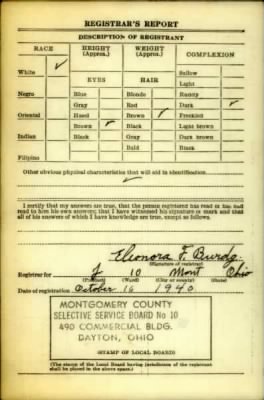 REGISTRAR'S REPORT
DESCRIPTION OF REGISTRANT
RACE
HEIGHT
(Approx.)
WEIGHT
(Approx.)
COMPLEXION
White ✓
EYES
HAIR
Sallow
Light
Negro
Blue
Blonde
Ruddy
Gray
Red
Dark ✓
Oriental
Hazel
Brown ✓
Freckled
Brown ✓
Black
Light brown
Indian
Black
Gray
Dark brown
Bald
Black
Filipino
Other obvious physical characteristics that will aid in identification
I certify that my answers are true; that the person registered has read or has had
read to him his own answers; that I have witnessed his signature or mark and that all
of his answers of which I have knowledge are true, except as follows:
Eleonora F. Burdg
(Signature of registrar)
Registrar for J 10 Mont Ohio
(Precinct) (Ward) (City or county) (State)
Date of registration October 16 1940
MONTGOMERY COUNTY
SELECTIVE SERVICE BOARD No 10
490 COMMERCIAL BLDG.
DAYTON, OHIO
(STAMP OF LOCAL BOARD)
(The stamp of the Local Board having jurisdiction of the registrant
shall be placed in the above space.)